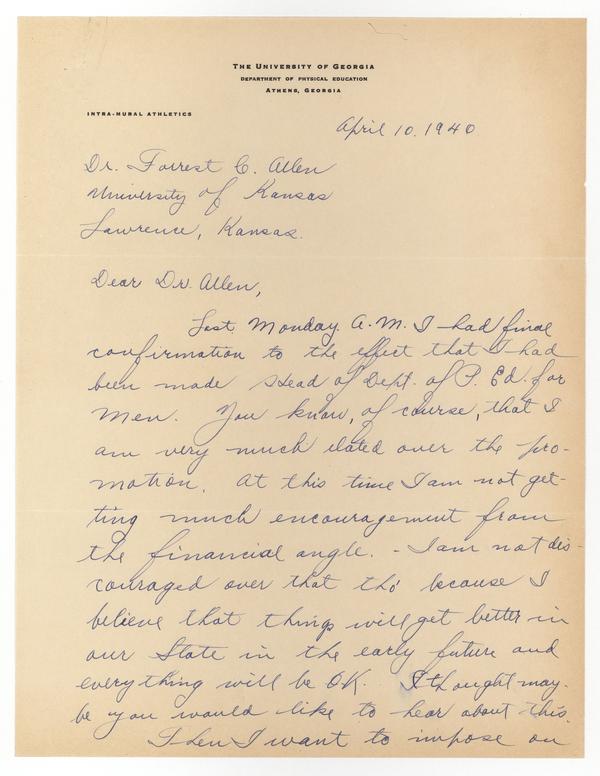 THE UNIVERSITY OF GEORGIA
DEPARTMENT OF PHYSICAL EDUCATION
ATHENS, GEORGIA
INTRA-MURAL ATHLETICS
April 10. 1940
Dr. Forrest C. Allen
University of Kansas
Lawrence, Kansas.
Dear Dr. Allen,
Last Monday A.M. I had final
confirmation to the effect that I had
been made Head of Dept. of P. Ed. for
Men. You know, of course, that I
am very much elated over the pro-
motion. At this time I am not get-
ting much encouragement from
the financial angle. - I am not dis-
couraged over that tho' because I
believe that things will get better in
our State in the early future and
everything will be OK. I thought may-
be you would like to hear about this.
Then I want to impose on